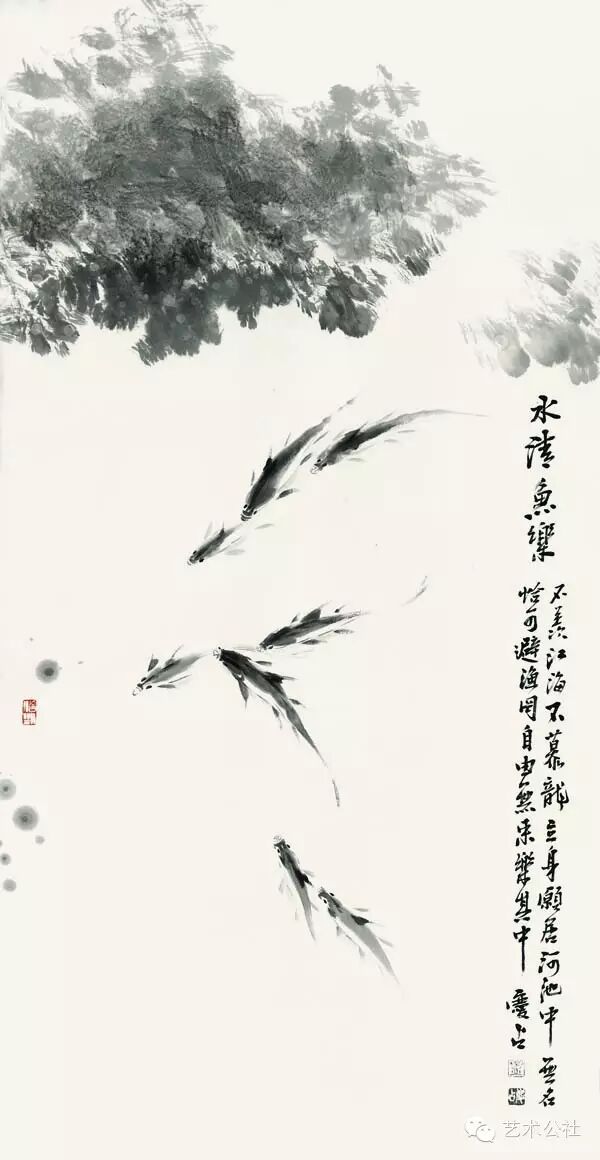 水清魚樂
不羨江海不慕龍立身願居河池中無名
恰可避漁罔自由無束樂其中
慶占
艺术公社